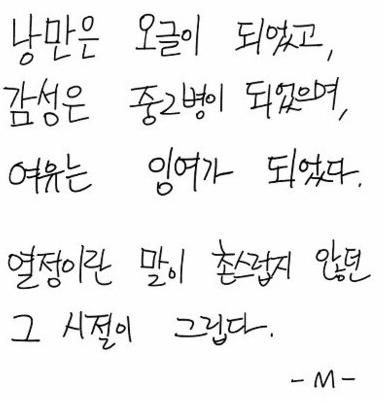 낭만은 오글이 되었고,
감성은 중2병이 되었으며,
여유는 잉여가 되었다.
열정이란 말이 촌스럽지 않던
그 시절이 그립다.
-M-